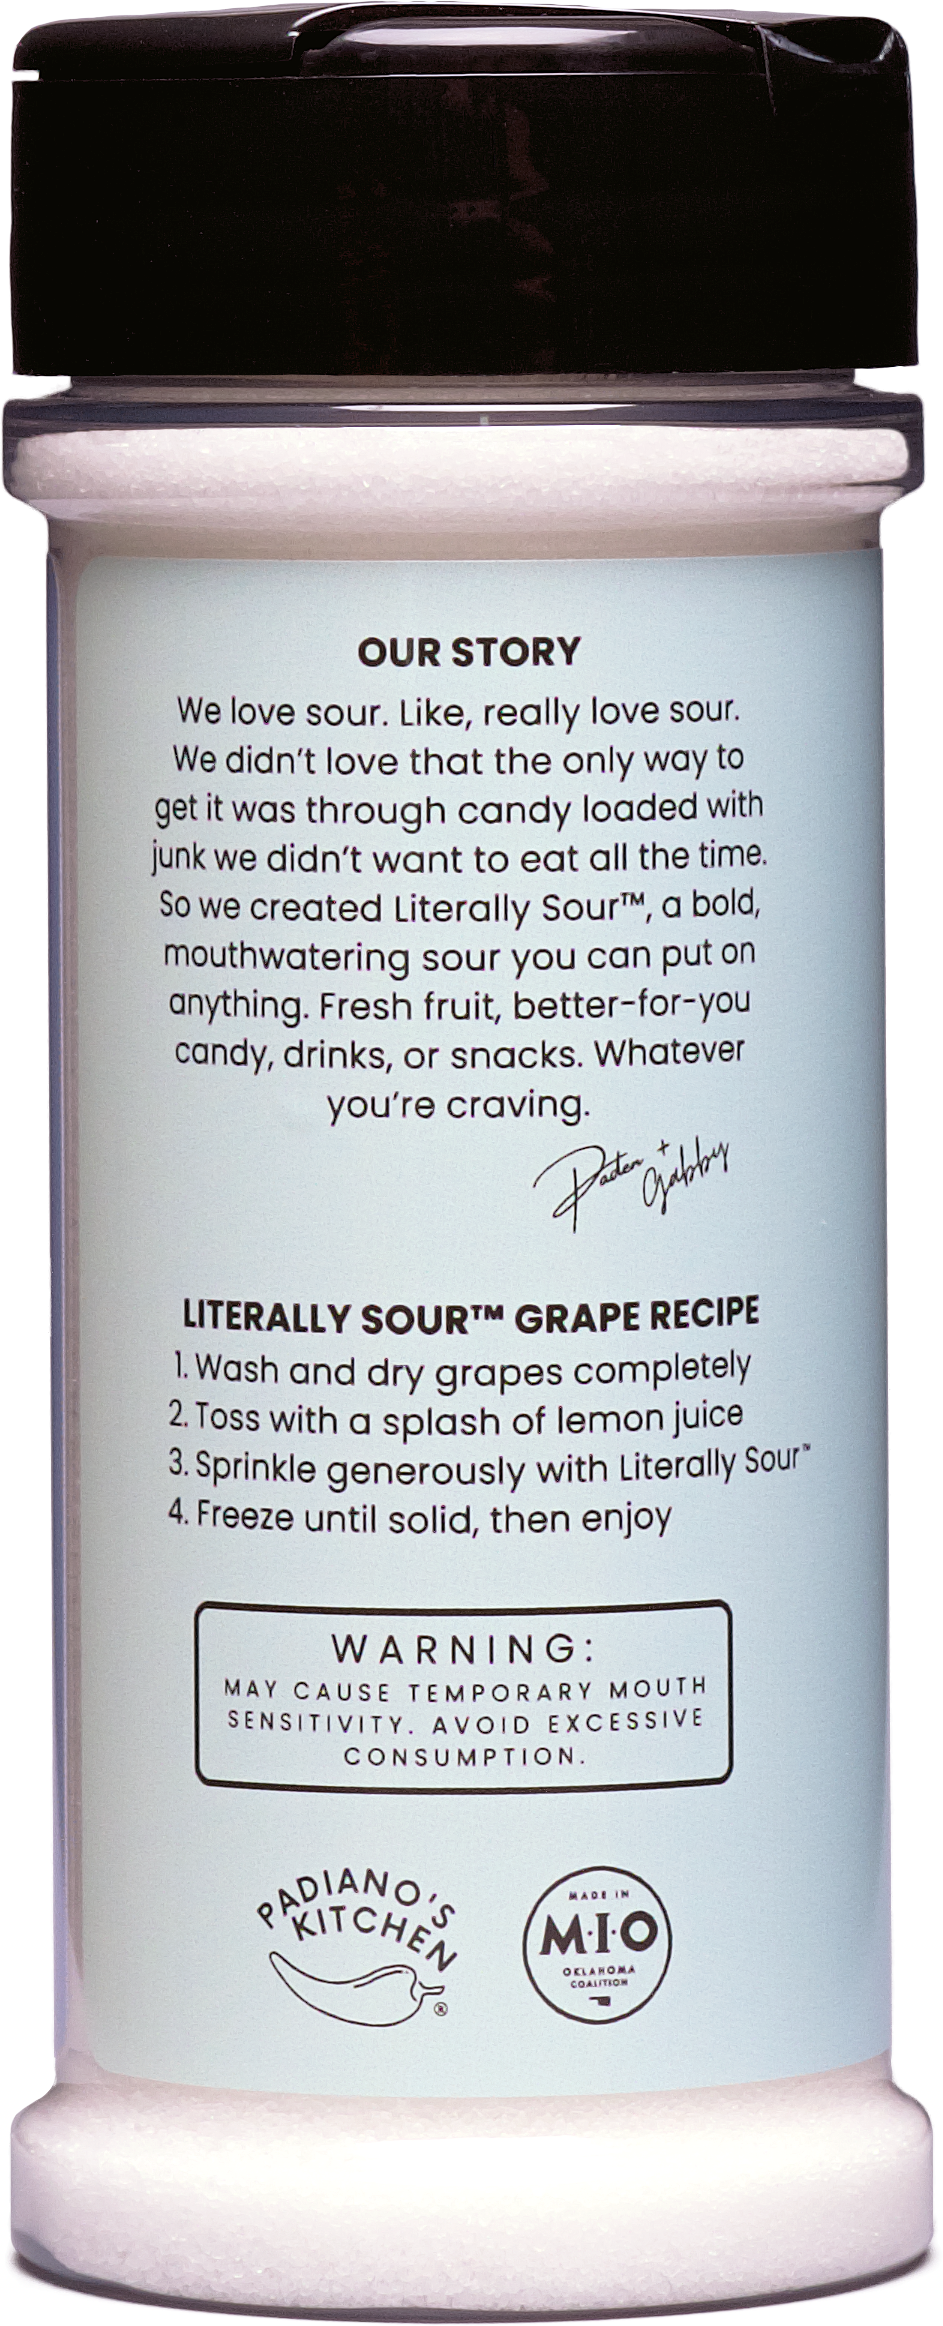 OUR STORY
We love sour. Like, really love sour.
We didn't love that the only way to
get it was through candy loaded with
junk we didn't want to eat all the time.
So we created Literally Sour™, a bold,
mouthwatering sour you can put on
anything. Fresh fruit, better-for-you
candy, drinks, or snacks. Whatever
you're craving.
Paden + Gabby
LITERALLY SOUR™ GRAPE RECIPE
1. Wash and dry grapes completely
2. Toss with a splash of lemon juice
3. Sprinkle generously with Literally Sour™
4. Freeze until solid, then enjoy
WARNING:
MAY CAUSE TEMPORARY MOUTH
SENSITIVITY. AVOID EXCESSIVE
CONSUMPTION.
PADIANO'S
KITCHEN
®
MADE IN
M·I·O
OKLAHOMA
COALITION